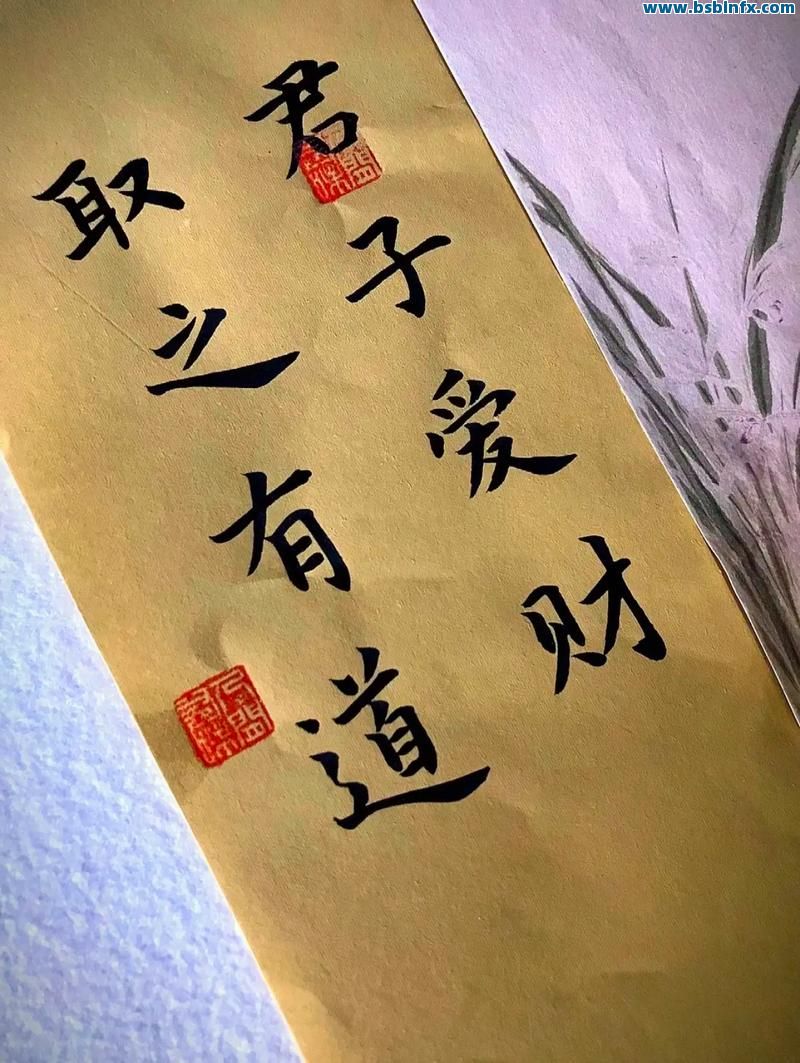 www.bsblnfx.com
君子爱财
取之有道